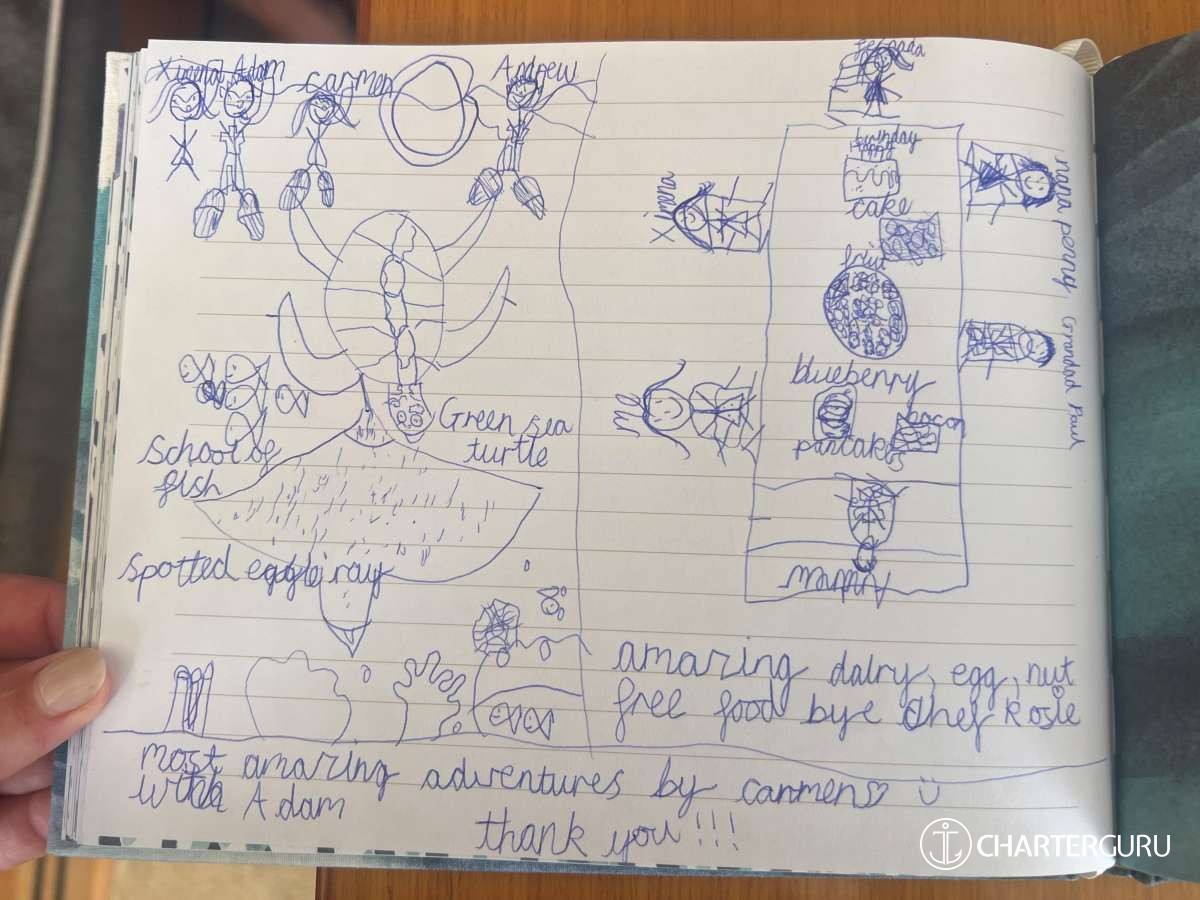 Ximena Adam
Carmen
Andrew
Green sea
turtle
School of
fish
Spotted eagle ray
birthday
happy
cake
Ximena
nana penny
Grandad Paul
fruit
me
blueberry
pancakes
bacon
Andrew
amazing dairy, egg, nut
free food bye chef Rosie
most amazing adventures by carmen
with Adam
thank you!!!
CHARTERGURU